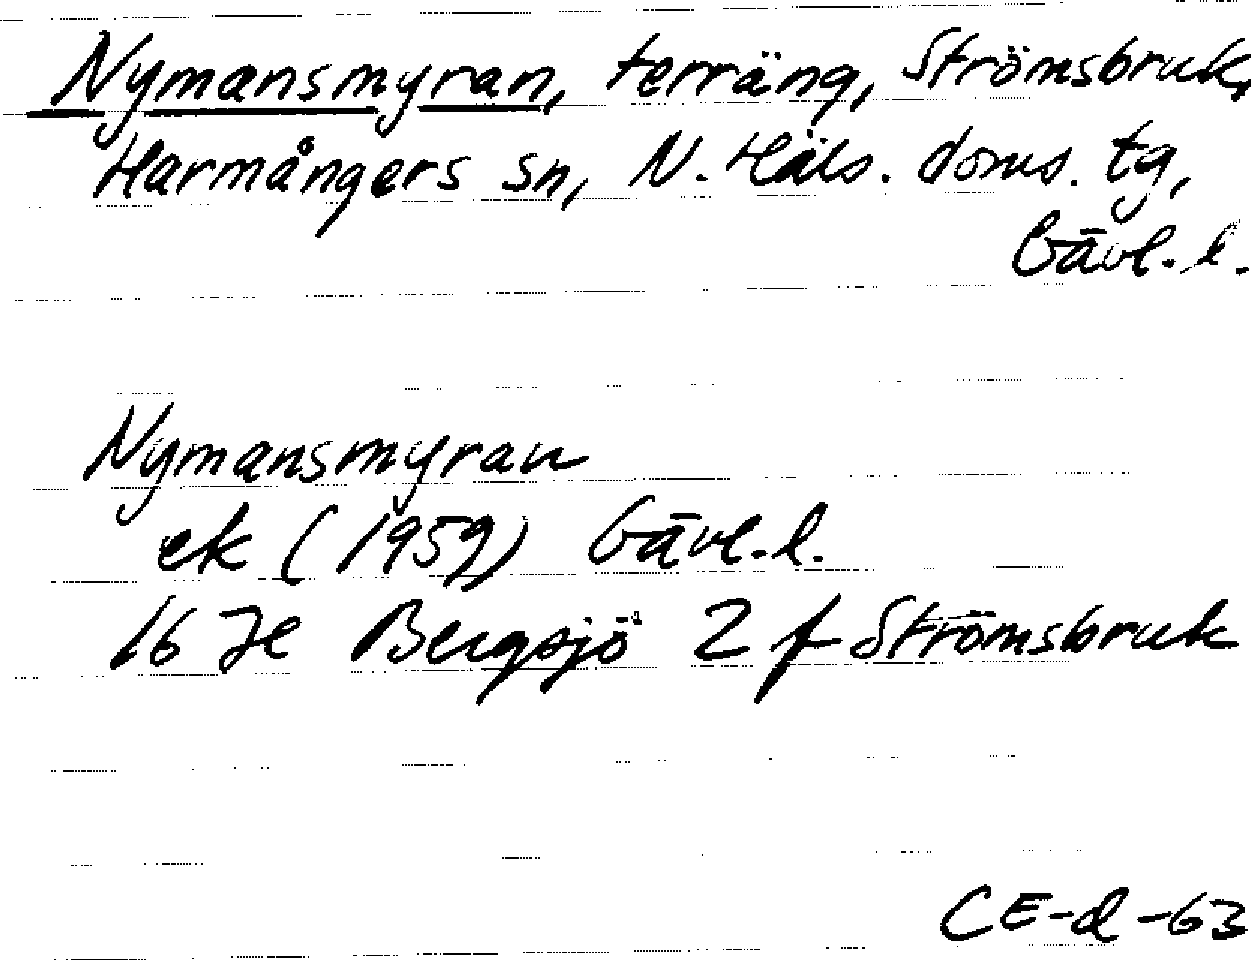 Nymansmyran, terräng, Strömsbruk,
Harmångers sn, N. Häls. doms. tg,
Gävl. l.
Nymansmyran
ek (1959) Gävl. l.
16 He Bergsjö 2 f Strömsbruk
CE-d-63